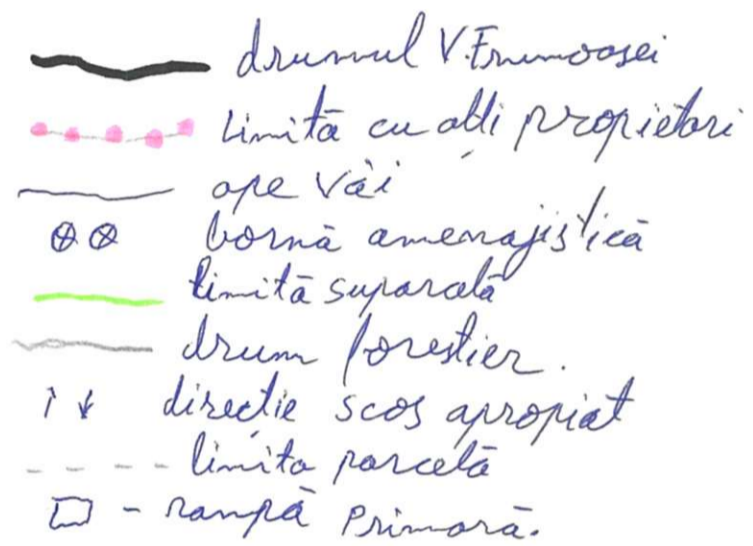 drumul V. Frumoasei
Limită cu alți propietari
ape văi
bornă amenajistică
limită suparcelă
drum forestier.
direcție scos apropiat
limita parcelă
- rampă primară.